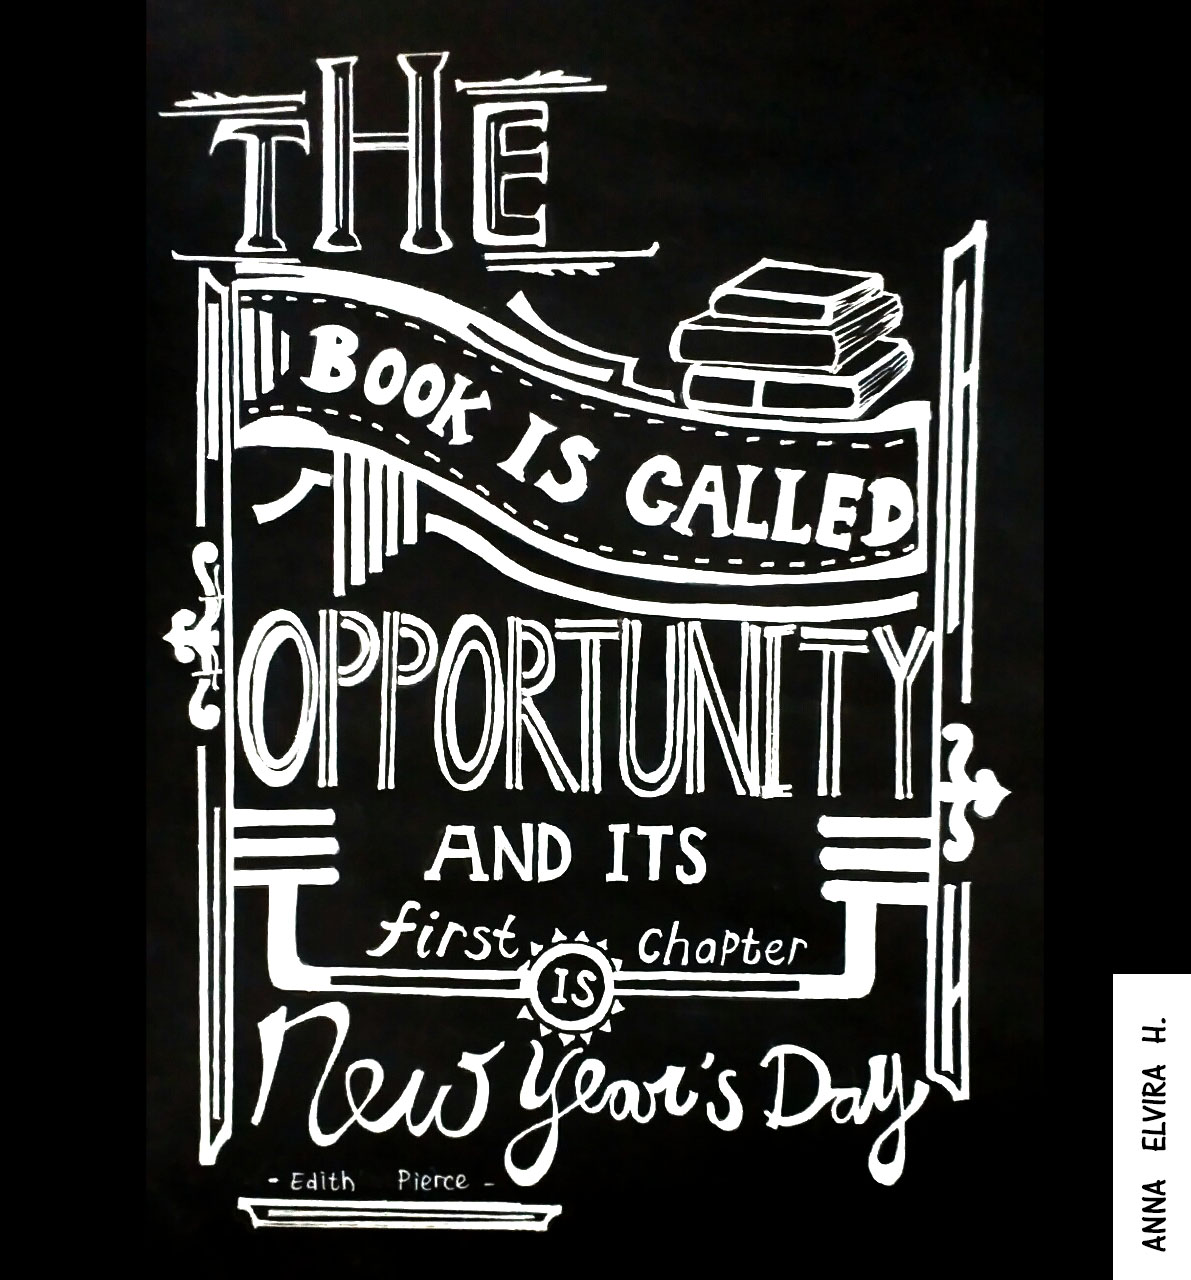 THE
BOOK IS CALLED
OPPORTUNITY
AND ITS
first chapter
IS
New Year's Day
- Edith Pierce -
ANNA ELVIRA H.